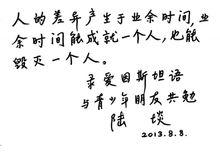 人的差异产生于业余时间,业
余时间能成就一个人,也能
毁灭一个人。
录爱因斯坦语
与青少年朋友共勉
陆埮
2013.8.8.